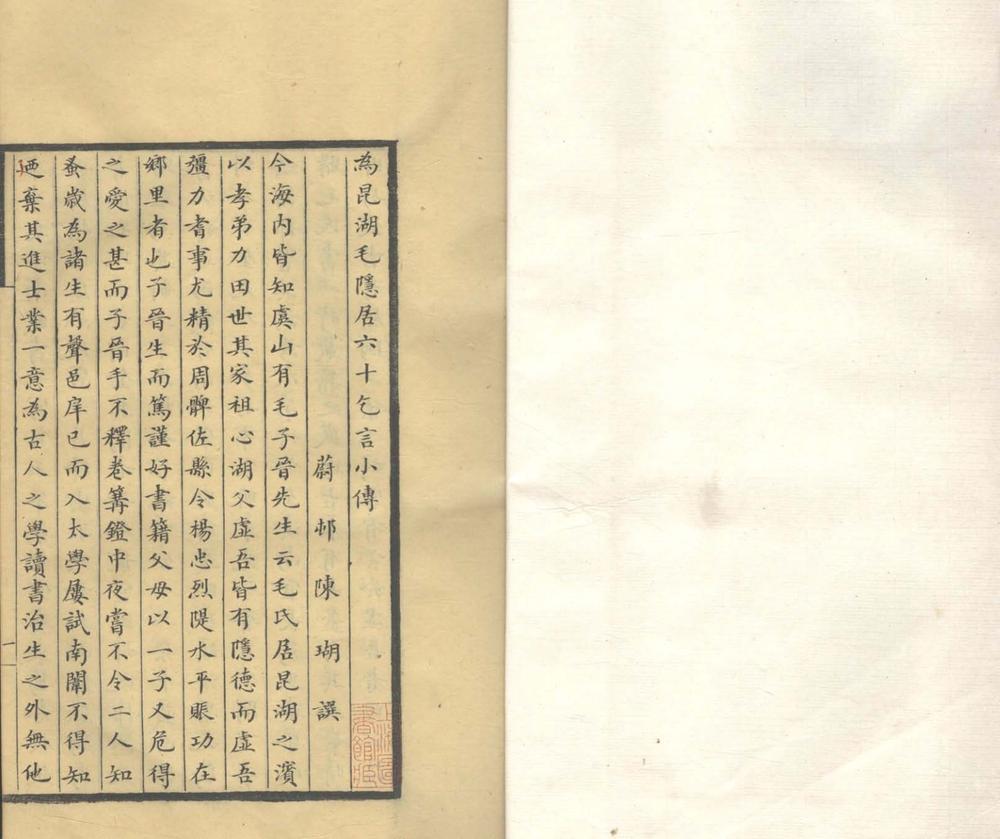 為昆湖毛隱居六十乞言小傳
蔚邨陳瑚譔
今海内皆知虞山有毛子晉先生云毛氏居昆湖之濱
以孝弟力田世其家祖心湖父虛吾皆有隱德而虛吾
彊力耆事尤精於周髀佐縣令楊忠烈隄水平賬功在
鄉里者也子晉生而篤謹好書籍父母以一子又危得
之愛之甚而子晉手不釋卷篝鐙中夜嘗不令二人知
蚤歲為諸生有聲邑庠已而入太學屢試南闈不得知
迺棄其進士業一意為古人之學讀書治生之外無他
上海圖
書館藏